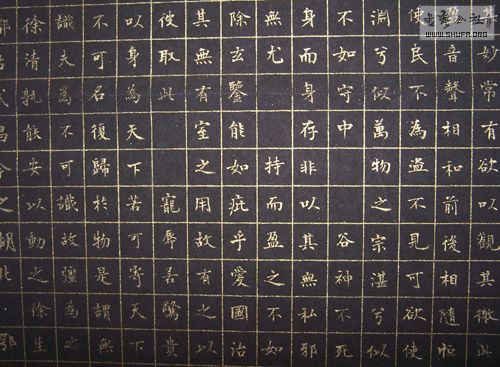 其妙常有欲以觀其徼此
音聲相和前後相隨恒
使民不為盜不見可欲使
淵兮似萬物之宗湛兮似
不如守中 谷神不死
身而身存非以其無私邪
無尤 持而盈之不如
除玄鑒能如疵乎愛國治
其無有室之用故有之以
彼取此 寵辱若驚貴
以身為天下若可寄天下
不可名復歸於物是謂無
識夫為不可識故彊為之
徐清孰能安以動之徐生
WWW.SHUFA.ORG